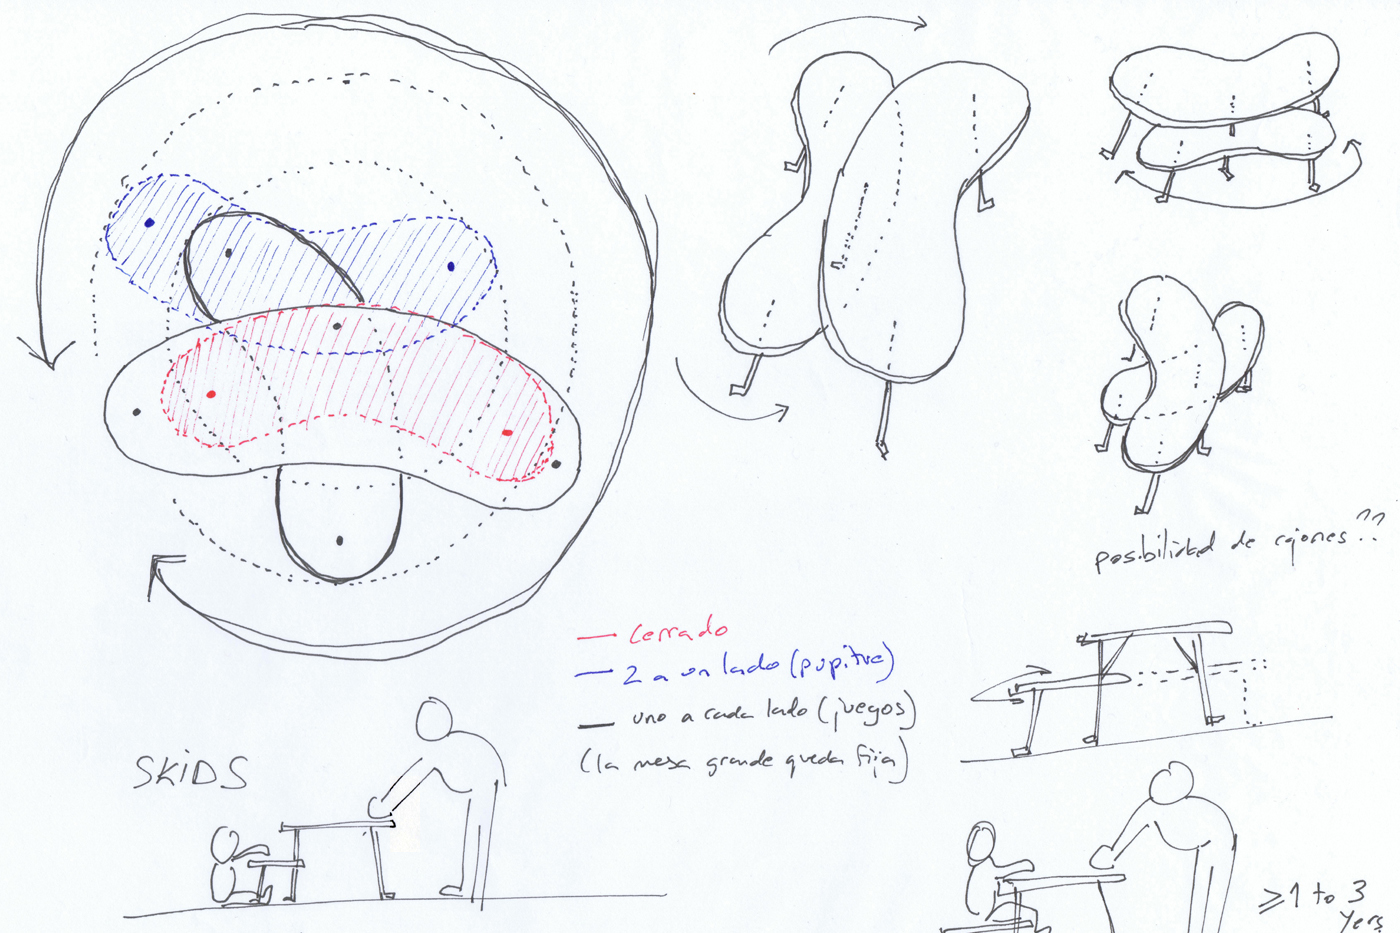 posibilidad de cajones??
cerrado
2 a un lado (pupitre)
uno a cada lado (juegos)
(la mesa grande queda fija)
SKIDS
≥1 to 3
Yers